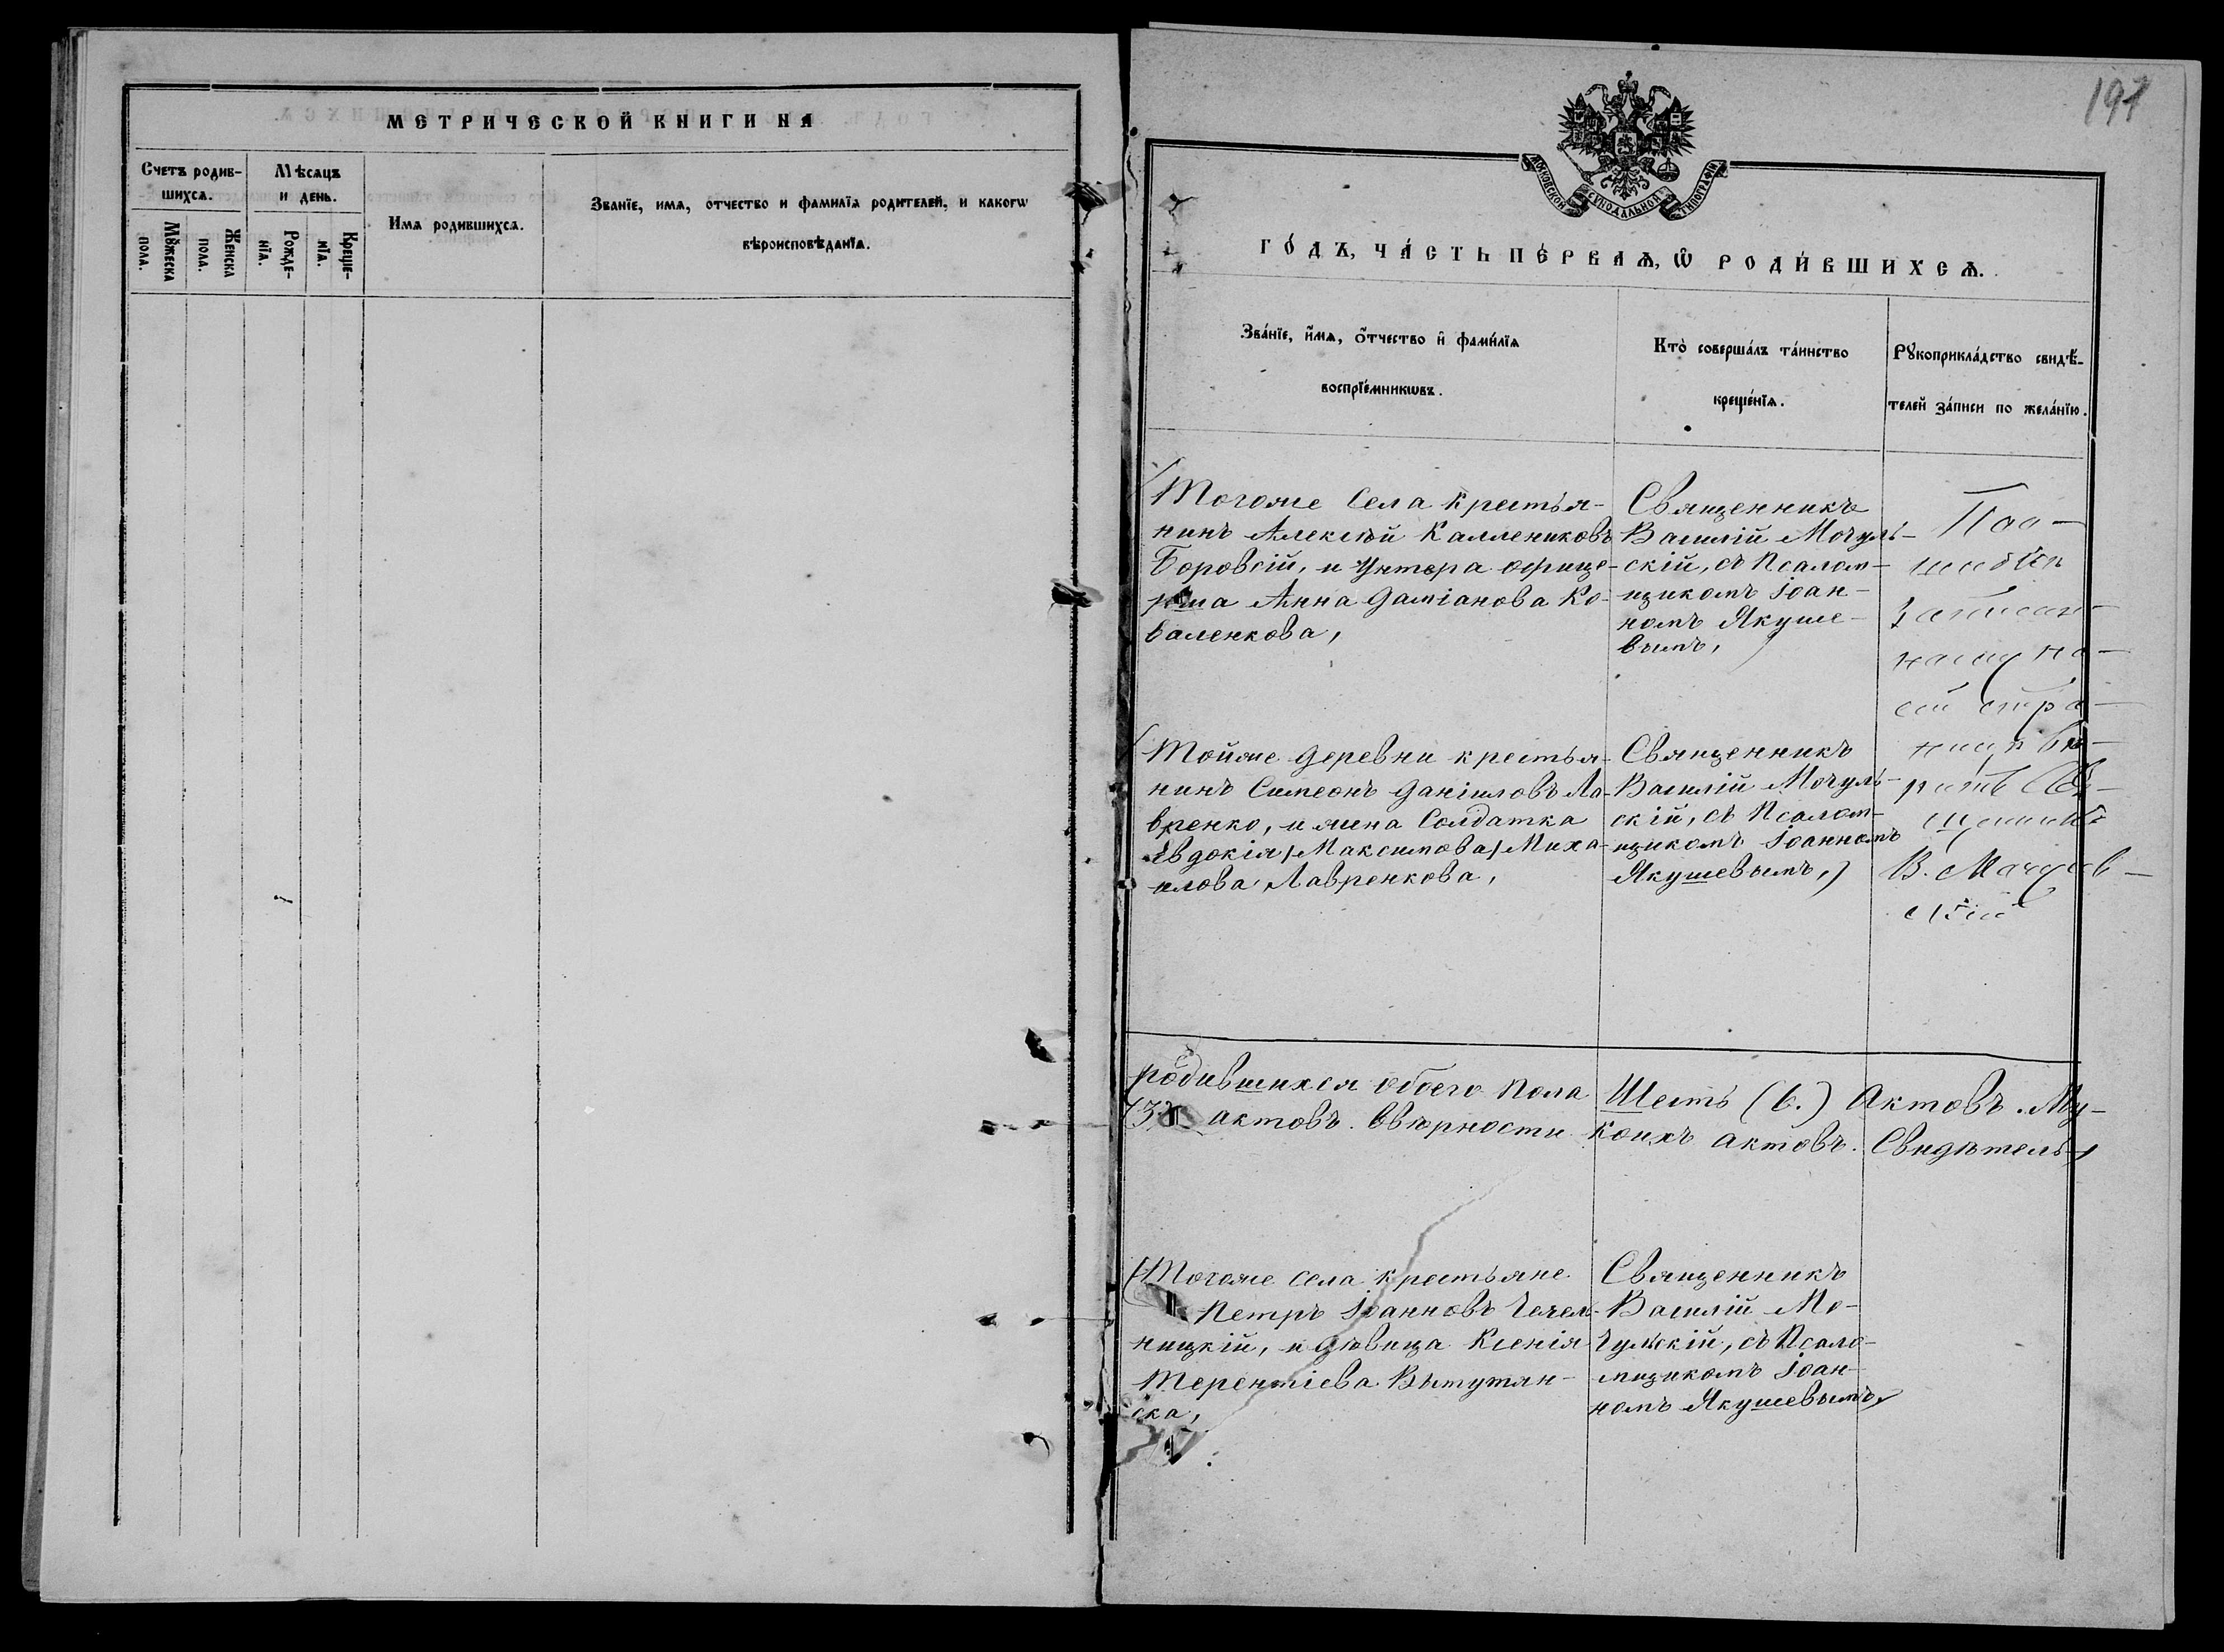 МЕТРИЧЕСКОЙ КНИГИ НА
Счетъ родив-
шихсѧ.
Мѣсѧцъ
и день.
Имѧ родившихсѧ.
Званїе, имѧ, отчество и фамилїѧ родителей, и какогѡ
вѣроисповѣданїѧ.
Мꙋжеска
пола.
Женска
пола.
Рожде-
нїѧ.
Креще-
нїѧ.
197
МОСКОВСКОЙ СѴНОДАЛЬНОЙ ТИПОГРАФІИ
ГО́ДЪ, ЧА́СТЬ ПЕ́РВАѦ, Ѽ РОДИ́ВШИХСѦ.
Зва́нїе, и҆́мѧ, ѻ҆́тчество и҆ фами́лїѧ
воспрїе́мникѡвъ.
Кто̀ соверша́лъ та́инство
креще́нїѧ.
Рꙋкоприкла́дство свидѣ́-
телей за́писи по жела́нїю.
Тогоже Села крестья-
нинъ Алексѣй Каллениковъ
Боровсій, и Унтера офице-
рша Анна Даміанова Ко-
валенкова,
Священникъ
Василій Мочуль-
скій, съ Псалом-
щикомъ Іоан-
номъ Якуше-
вымъ,
По
записан-
ному на
сей стра-
ницѣ вѣ-
рить Свя-
щенникъ
В. Мочуль-
скій
Тойже деревни крестья-
нинъ Симеонъ Даніиловъ Ла-
вренко, и жена Солдатка
Евдокія /Максимова/ Миха-
илова Лавренкова,
Священникъ
Василій Мочуль-
скій, съ Псалом-
щикомъ Іоанномъ
Якушевымъ,
родившихся обоего пола Шесть (6.) Актовъ. Му-
актовъ. Ввѣрности коихъ актовъ. Свидѣтель-
Тогоже села крестьяне
Петръ Іоанновъ Чечель-
ницкій, и дѣвица Ксенія
Терентіева Вытутян-
ска,
Священникъ
Василій Мо-
чульскій, съ Псало-
мщикомъ Іоан-
номъ Якушевымъ,